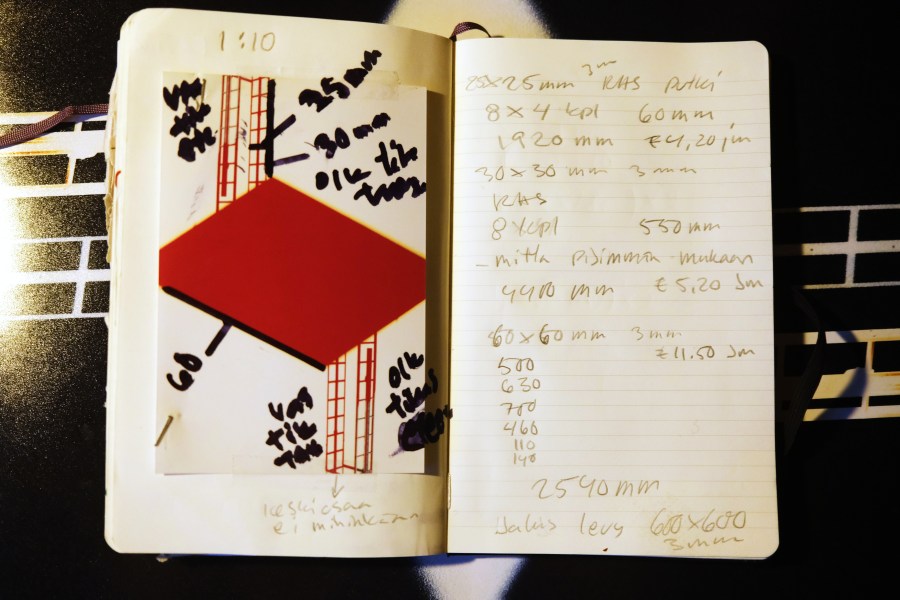 1:10
25mm
30mm
olk
60
olk
keskiosaa
ei mihinkään
3m
25x25mm RHS putki
8x4 kpl 60mm
1920 mm €4,20 jm
30x30 mm 3mm
RHS
8 kpl 550mm
- mitta pisimmän mukaan
4400 mm € 5,20 Jm
60x60 mm 3mm
€11.50 Jm
500
630
700
460
110
140
2540mm
Jalus levy 600x600
3mm